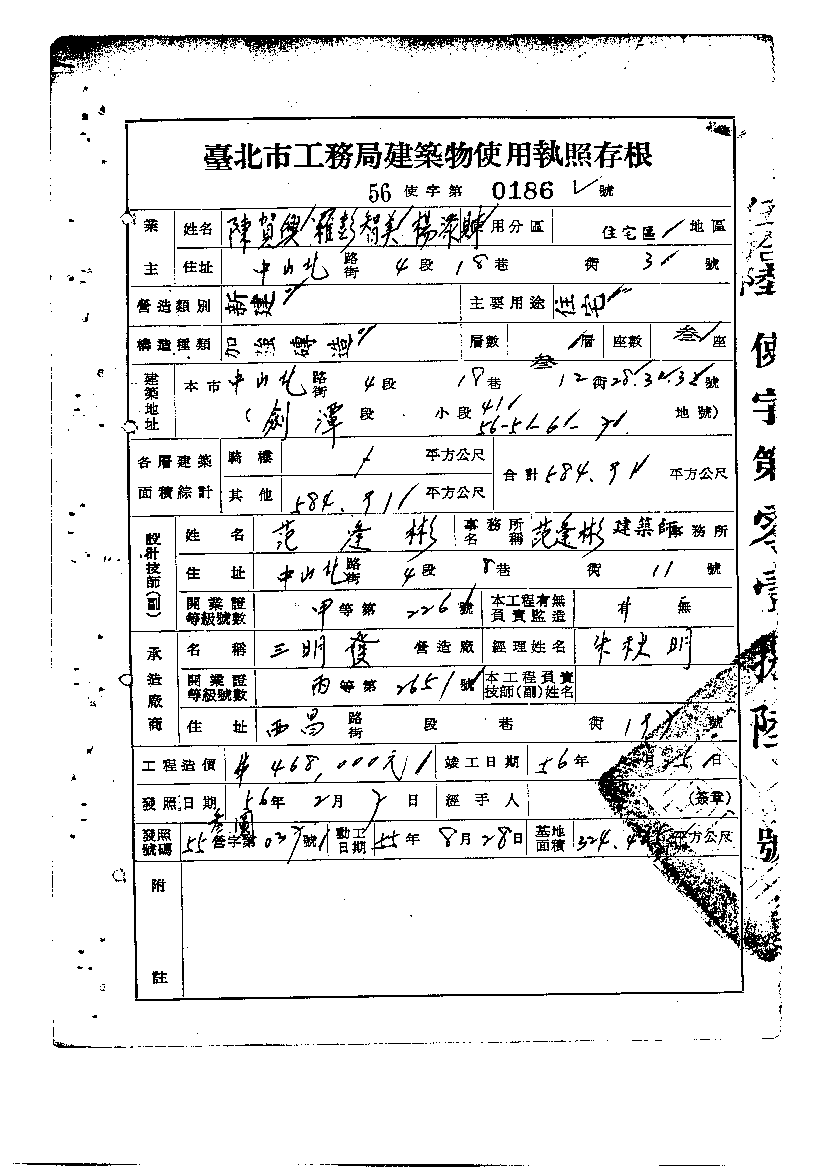 臺北市工務局建築物使用執照存根
56 使字第 0186 號
業主 姓名 陳賀興 羅彭智美 楊 用分區 住宅區 地區
住址 中山北 路街 4 段 18 巷 衖 3 號
營造類別 新建 主要用途 住宅
構造種類 加強磚造 層數 叁 層 座數 叁 座
建築地址 本市 中山北 路街 4 段 18 巷 12 衖 28.30.32 號
(劍潭 段 小段 地號)
各層建築面積綜計 騎樓 平方公尺 合計 584.91 平方公尺
其他 584.91 平方公尺
設計技師(副) 姓名 范逢彬 事務所名稱 范逢彬建築師事務所
住址 中山北 路街 4 段 8 巷 衖 11 號
開業證等級號數 甲 等第 226 號 本工程有無負責監造 有 無
承造廠商 名稱 三明發 營造廠 經理姓名 朱 明
開業證等級號數 丙 等第 265 號 本工程負責技師(副)姓名
住址 西昌 路街 段 巷 衖 號
工程造價 468,000元 竣工日期 56 年 月 日
發照日期 56 年 2 月 日 經手人 (簽章)
發照號碼 55 營字第 號 動工日期 55 年 8 月 28 日 基地面積 324. 平方公尺
附註
伍拾陸使字第零壹捌陸號